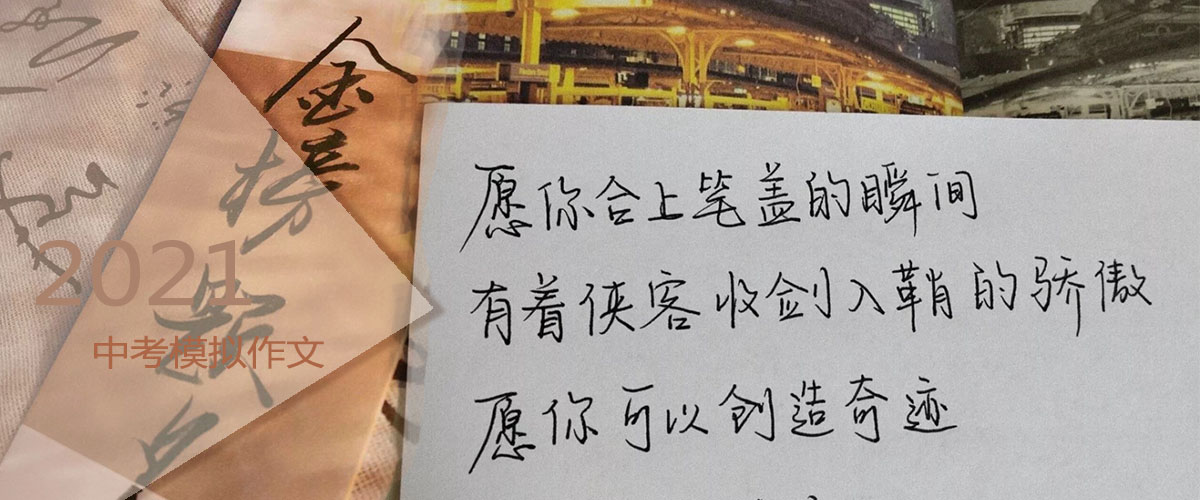 金榜题名
2021
中考模拟作文
愿你合上笔盖的瞬间
有着侠客收剑入鞘的骄傲
愿你可以创造奇迹